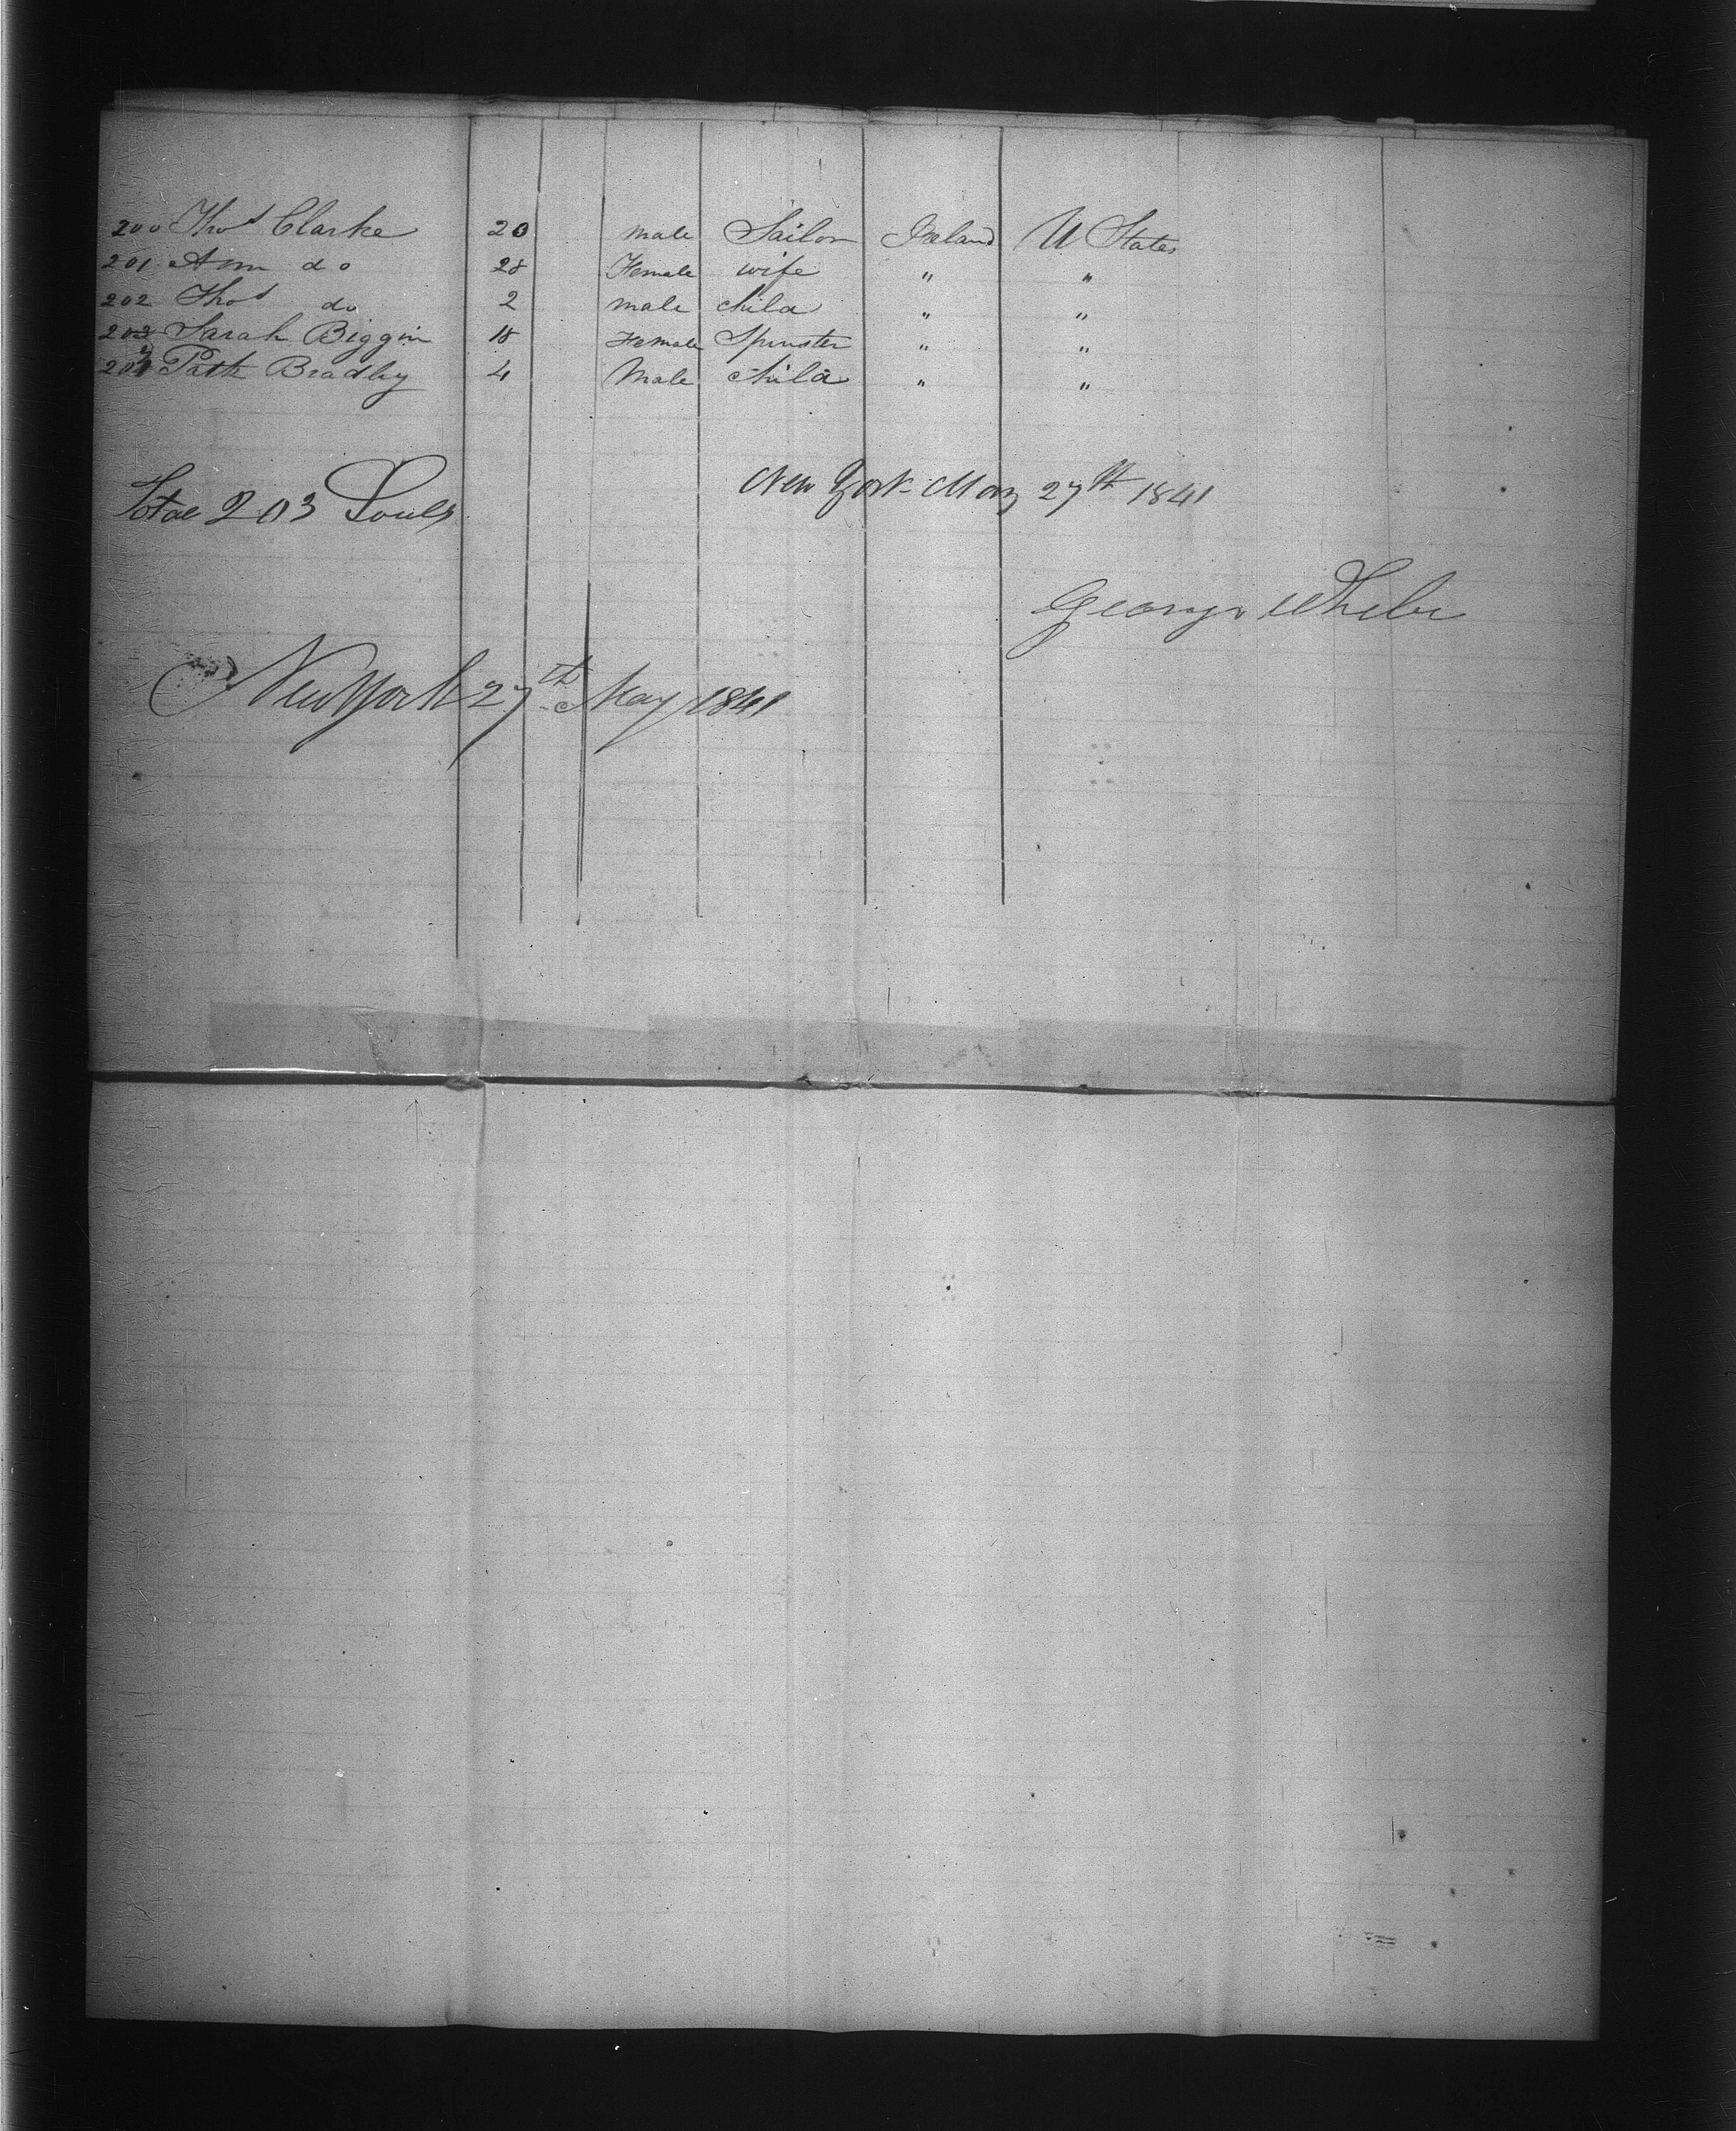 200 Thos Clarke 20 male Sailor Ireland U States
201 Ann do 28 Female wife " "
202 Thos do 2 male child " "
Sarah Biggin 18 Female Spinster " "
Patk Bradley 4 Male child " "
Total 203 Souls
New York May 27th 1841
George
New York 27th May 1841